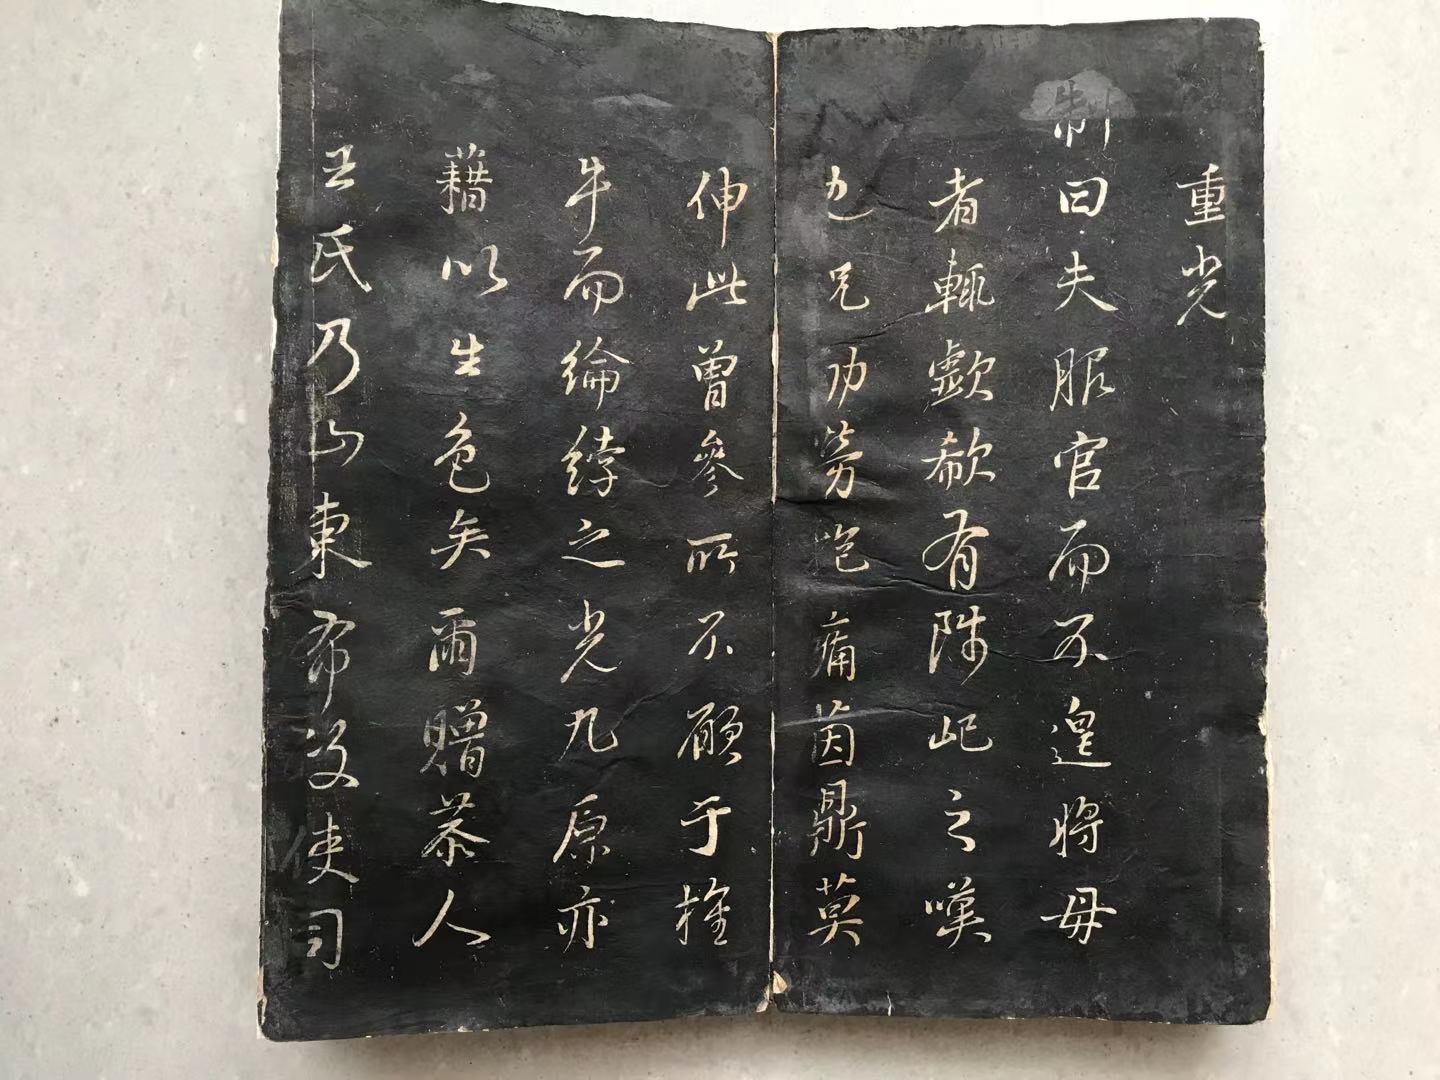 重光
制曰夫服官而不遑將母
者輒歔欷有陟屺之嘆
也兄劬勞疮痛茵鼎莫
伸此曾參所不願于搥
牛而綸綍之光九原亦
藉以生色矣爾贈恭人
王氏乃山東布政使司